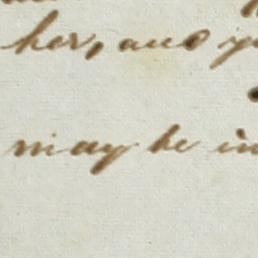 her, and
may be in